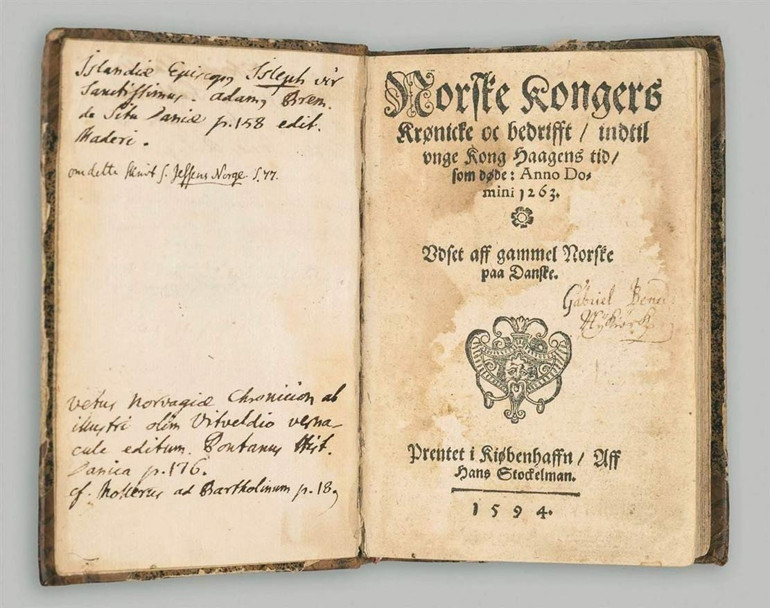 Islandiæ Episcopq Isleph vir
Sanctissimus. adamq Brem.
de Situ Daniæ p. 158 edit.
Maderi.
om dette skrift s. Jessens Norge S. 77.
vetus Norvagiæ Chronicion ab
illustri olim Vitveldio verna-
cule editum. Pontanus Hist.
Danica p. 176.
cf. Mollerus ad Bartholinum p. 18
Norske Kongers
Krønicke oc bedrifft / indtil
vnge Kong Haagens tid /
som døde: Anno Do-
mini 1263.
Vdset aff gammel Norske
paa Danske.
Gabriel
Prentet i Kiøbenhaffn / Aff
Hans Stockelman.
1594.